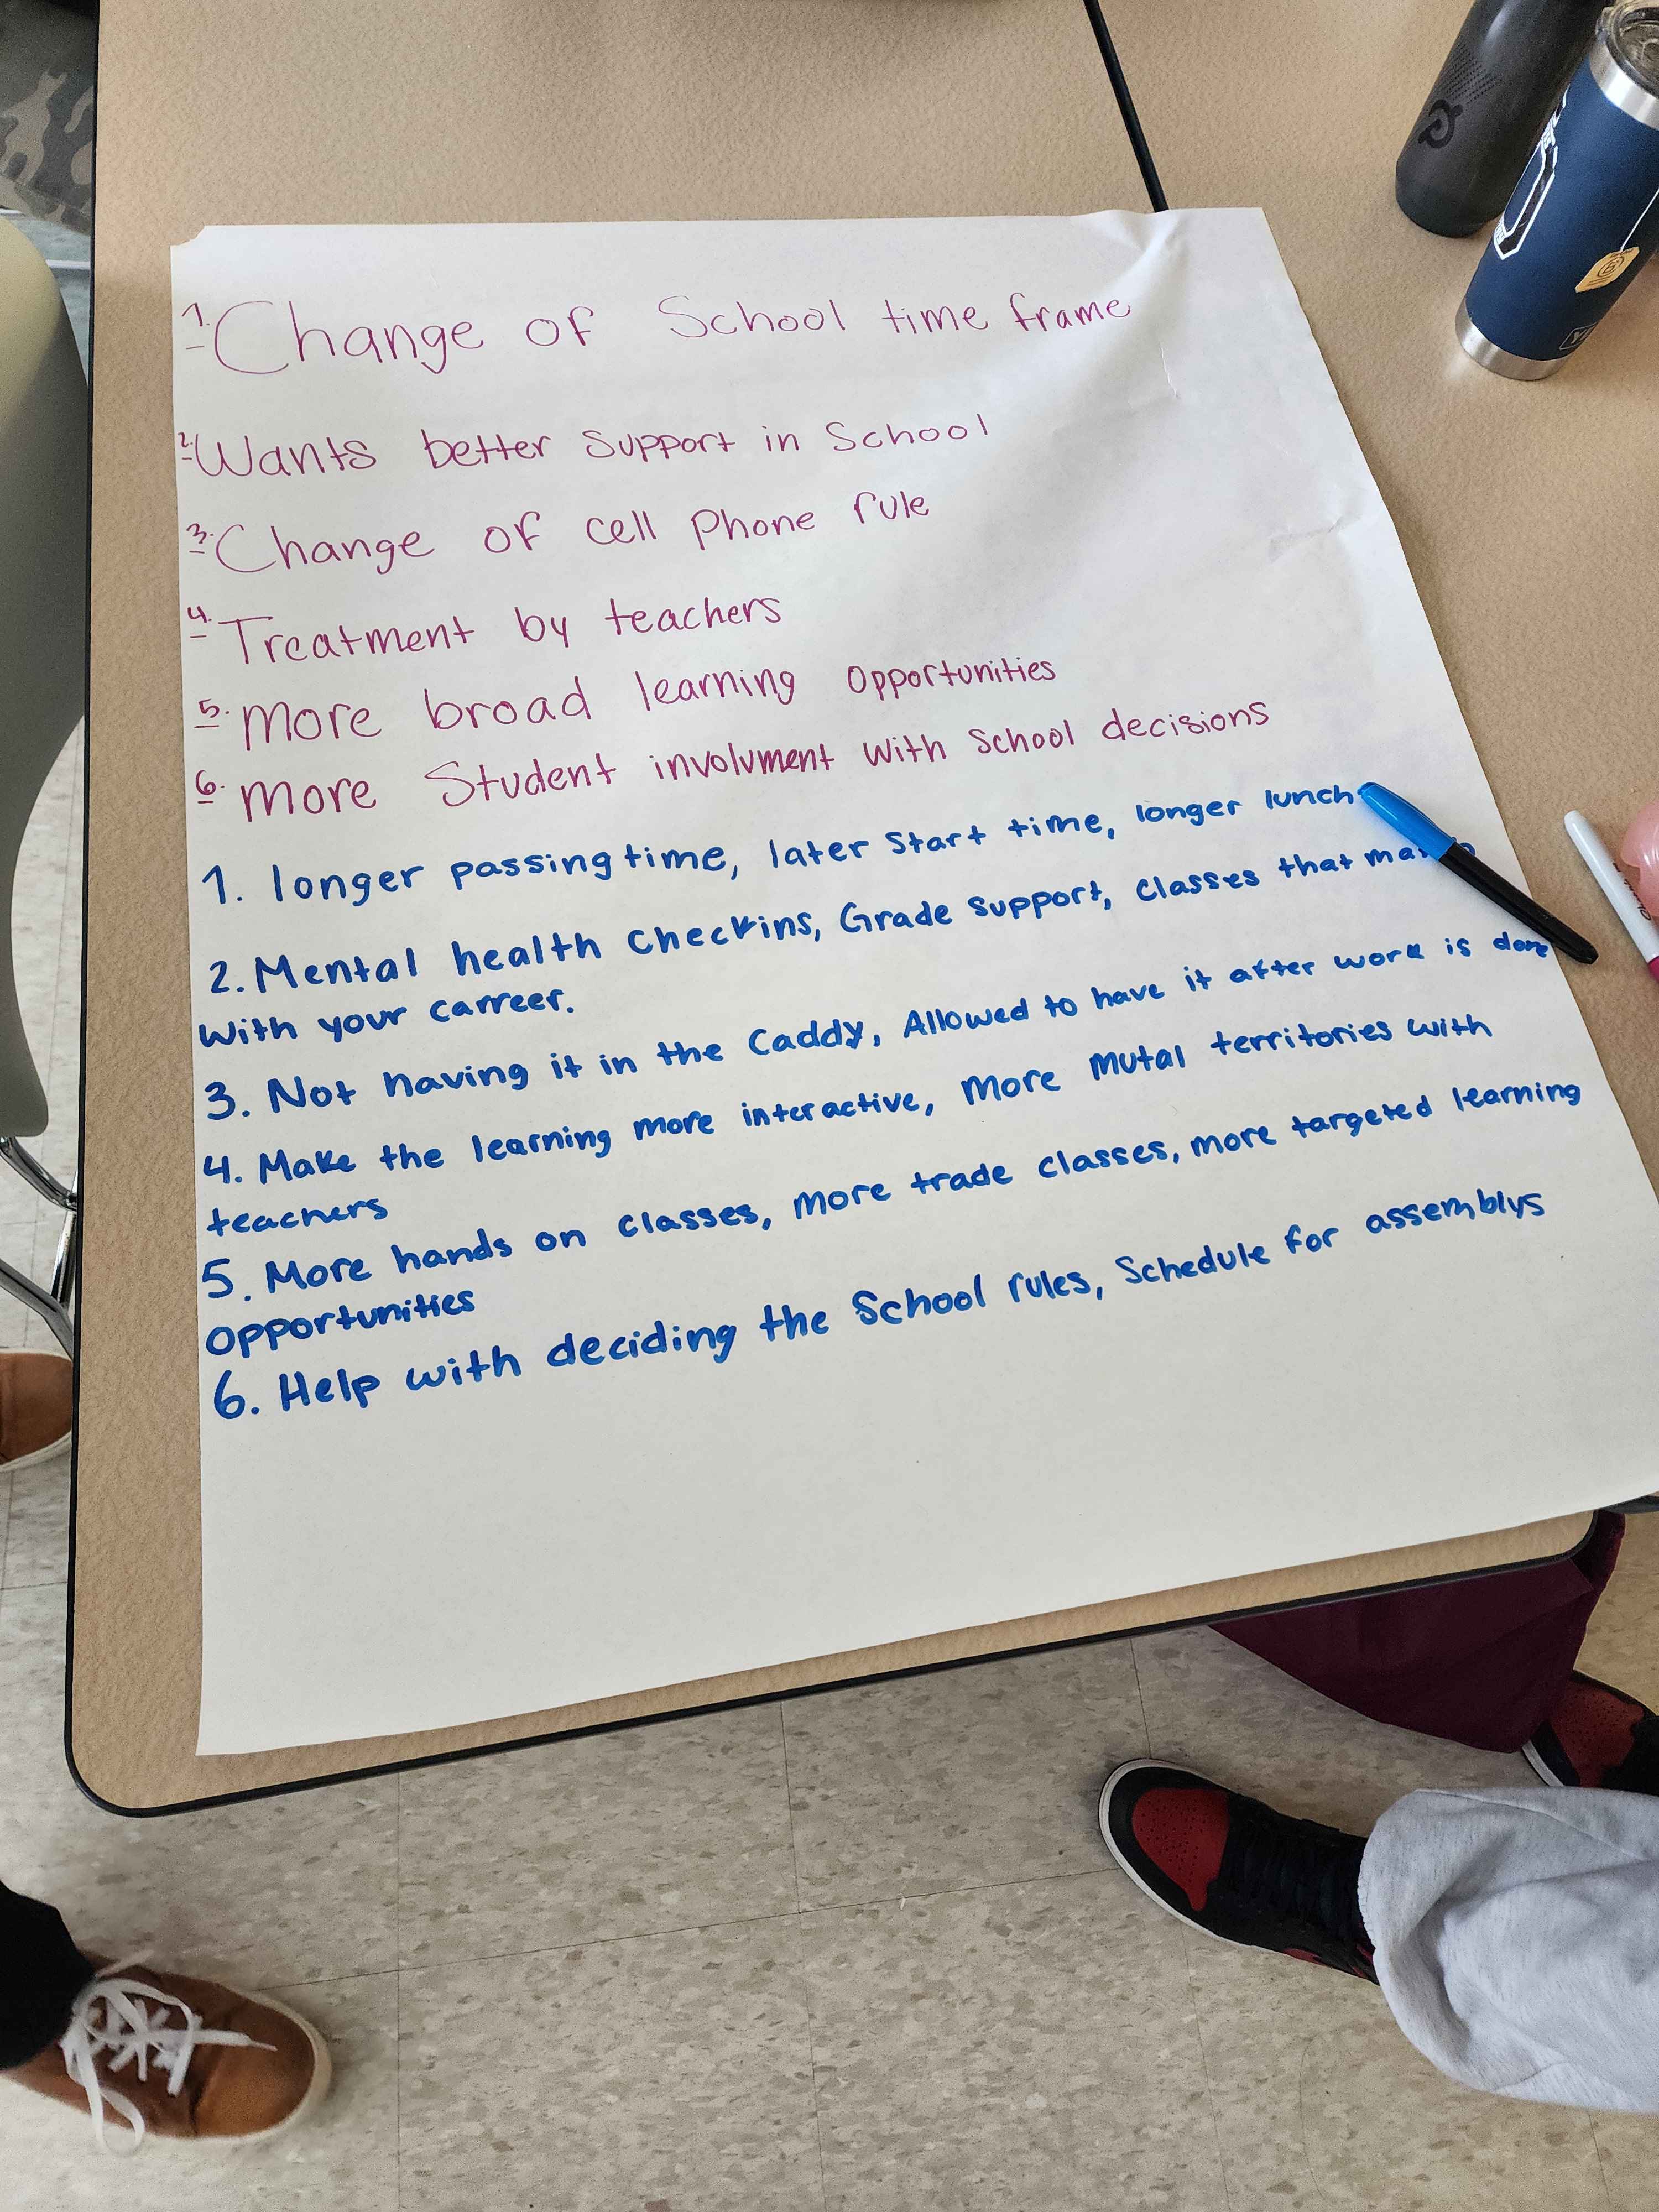 1. Change of School time frame
2. Wants better Support in School
3. Change of cell Phone rule
4. Treatment by teachers
5. more broad learning opportunities
6. more Student involvment with School decisions
1. longer passing time, later Start time, longer lunch
2. Mental health checkins, Grade support, classes that
with your carreer.
3. Not having it in the Caddy, Allowed to have it after work is done
4. Make the learning more interactive, More mutal territories with
teachers
5. More hands on classes, more trade classes, more targeted learning
opportunities
6. Help with deciding the School rules, Schedule for assemblys